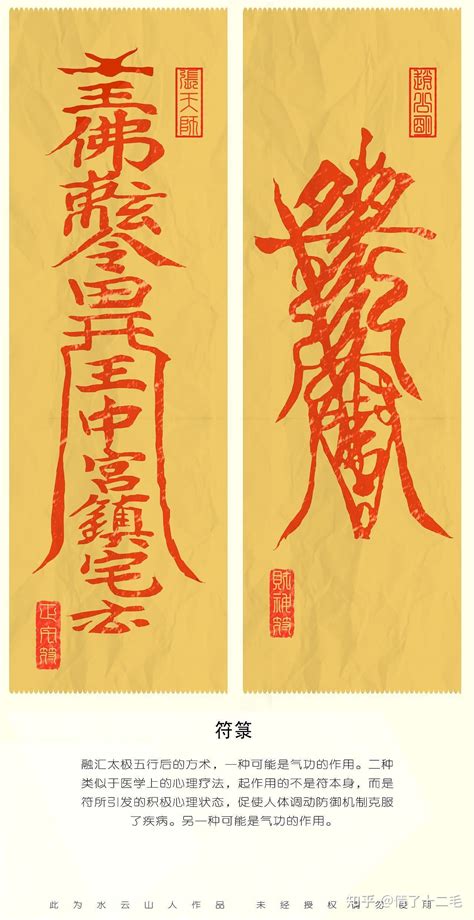 張天師
佛
令
王
中
宮
鎮
宅
趙公明
財神符
符箓
融汇太极五行后的方术，一种可能是气功的作用。二种
类似于医学上的心理疗法，起作用的不是符本身，而是
符所引发的积极心理状态，促使人体调动防御机制克服
了疾病。另一种可能是气功的作用。
此为水云山人作品 未经授权
知乎 @借了十二毛